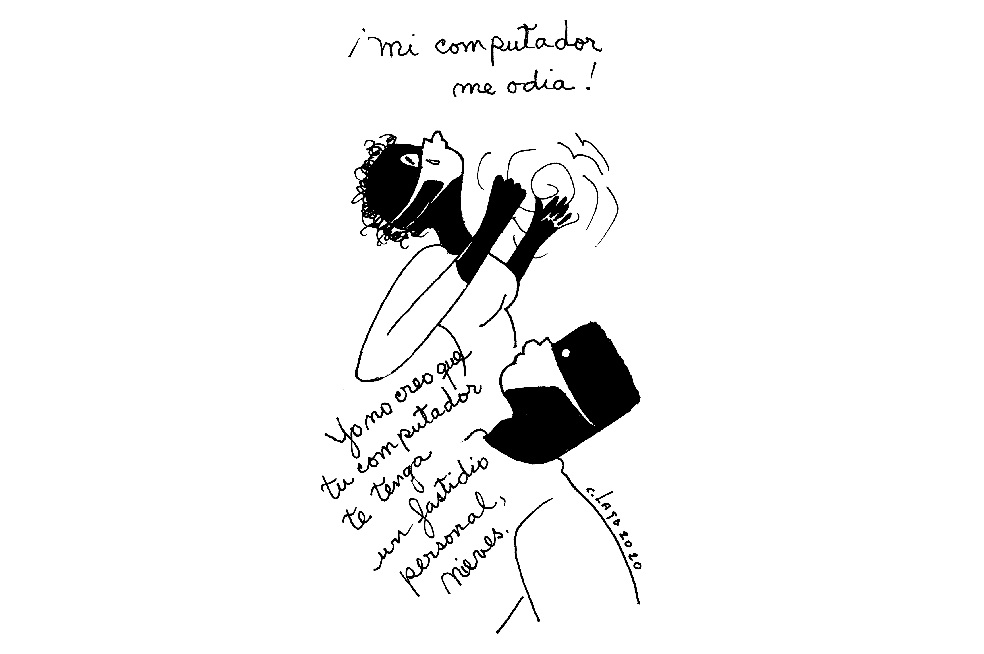 ¡mi computador
me odia!
Yo no creo que
tu computador
te tenga
un fastidio
personal,
nieves.
c. Lago 2020